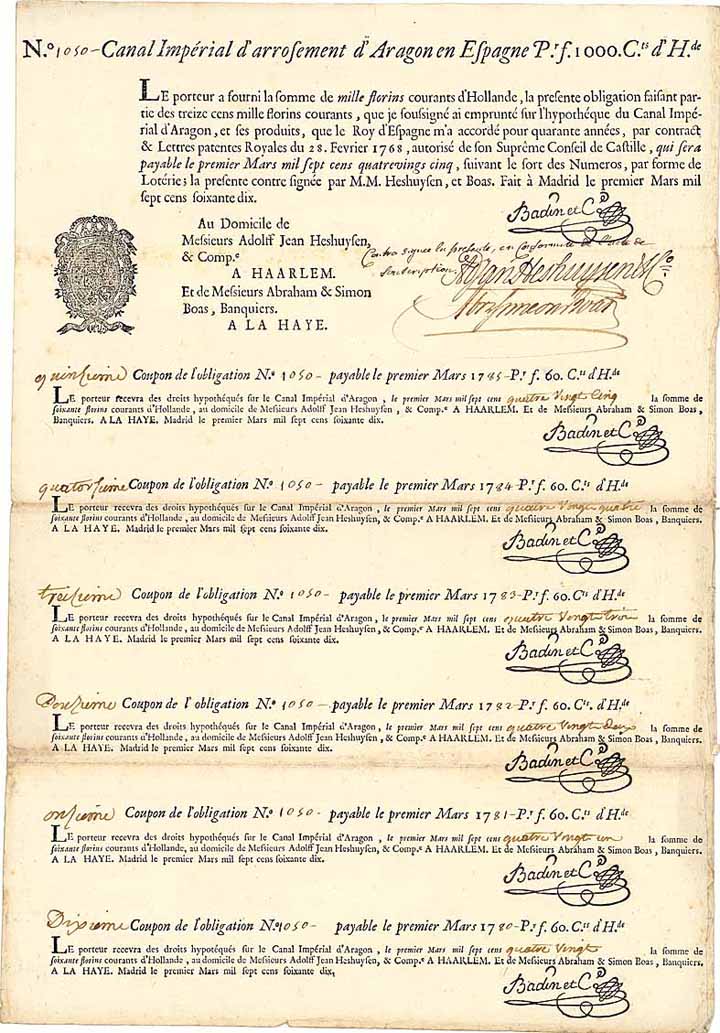 N.º 1050 - Canal Impérial d'arrosement d'Aragon en Espagne P.r f. 1000. C.ts d'H.de
LE porteur a fourni la somme de mille florins courants d'Hollande, la presente obligation faisant par-
tie des treize cens mille florins courants, que je soussigné ai emprunté sur l'hypothéque du Canal Impé-
rial d'Aragon, et ses produits, que le Roy d'Espagne m'a accordé pour quarante années, par contract
& Lettres patentes Royales du 28. Fevrier 1768, autorisé de son Suprême Conseil de Castille, qui sera
payable le premier Mars mil sept cens quatrevings cinq, suivant le sort des Numeros, par forme de
Lotérie; la presente contre signée par M.M. Heshuysen, et Boas. Fait à Madrid le premier Mars mil
sept cens soixante dix.
Badin et C.º
Au Domicile de
Messieurs Adolff Jean Heshuysen,
& Comp.e
A HAARLEM.
Et de Messieurs Abraham & Simon
Boas, Banquiers.
A LA HAYE.
Contra signée la presente, en conformité de l'acte de
souscription.
Jan Heshuysen & Co.
Abr Simeon Boas
quinsieme Coupon de l'obligation N.º 1050 - payable le premier Mars 1785 - P.r f. 60. C.ts d'H.de
LE porteur recevra des droits hypothéqués sur le Canal Impérial d'Aragon, le premier Mars mil sept cens quatre vingt cinq la somme de
soixante florins courants d'Hollande, au domicile de Messieurs Adolff Jean Heshuysen, & Comp.e A HAARLEM. Et de Messieurs Abraham & Simon Boas,
Banquiers. A LA HAYE. Madrid le premier Mars mil sept cens soixante dix.
Badin et C.º
quatorsieme Coupon de l'obligation N.º 1050 - payable le premier Mars 1784 - P.r f. 60. C.ts d'H.de
LE porteur recevra des droits hypothéqués sur le Canal Impérial d'Aragon, le premier Mars mil sept cens quatre vingt quatre la somme de
soixante florins courants d'Hollande, au domicile de Messieurs Adolff Jean Heshuysen, & Comp.e A HAARLEM. Et de Messieurs Abraham & Simon Boas, Banquiers.
A LA HAYE. Madrid le premier Mars mil sept cens soixante dix.
Badin et C.º
treisieme Coupon de l'obligation N.º 1050 - payable le premier Mars 1783 - P.r f. 60. C.ts d'H.de
LE porteur recevra des droits hypothéqués sur le Canal Impérial d'Aragon, le premier Mars mil sept cens quatre vingt trois la somme de
soixante florins courants d'Hollande, au domicile de Messieurs Adolff Jean Heshuysen, & Comp.e A HAARLEM. Et de Messieurs Abraham & Simon Boas, Banquiers.
A LA HAYE. Madrid le premier Mars mil sept cens soixante dix.
Badin et C.º
Douzieme Coupon de l'obligation N.º 1050 - payable le premier Mars 1782 - P.r f. 60. C.ts d'H.de
LE porteur recevra des droits hypothéqués sur le Canal Impérial d'Aragon, le premier Mars mil sept cens quatre vingt deux la somme de
soixante florins courants d'Hollande, au domicile de Messieurs Adolff Jean Heshuysen, & Comp.e A HAARLEM. Et de Messieurs Abraham & Simon Boas, Banquiers.
A LA HAYE. Madrid le premier Mars mil sept cens soixante dix.
Badin et C.º
onsieme Coupon de l'obligation N.º 1050 - payable le premier Mars 1781 - P.r f. 60. C.ts d'H.de
LE porteur recevra des droits hypothéqués sur le Canal Impérial d'Aragon, le premier Mars mil sept cens quatre vingt un la somme de
soixante florins courants d'Hollande, au domicile de Messieurs Adolff Jean Heshuysen, & Comp.e A HAARLEM. Et de Messieurs Abraham & Simon Boas, Banquiers.
A LA HAYE. Madrid le premier Mars mil sept cens soixante dix.
Badin et C.º
Dixieme Coupon de l'obligation N.º 1050 - payable le premier Mars 1780 - P.r f. 60. C.ts d'H.de
LE porteur recevra des droits hypotéqués sur le Canal Impérial d'Aragon, le premier Mars mil sept cens quatre vingt la somme de
soixante florins courants d'Hollande, au domicile de Messieurs Adolff Jean Heshuysen, & Comp.e A HAARLEM. Et de Messieurs Abraham & Simon Boas, Banquiers.
A LA HAYE. Madrid le premier Mars mil sept cens soixante dix,
Badin et C.º